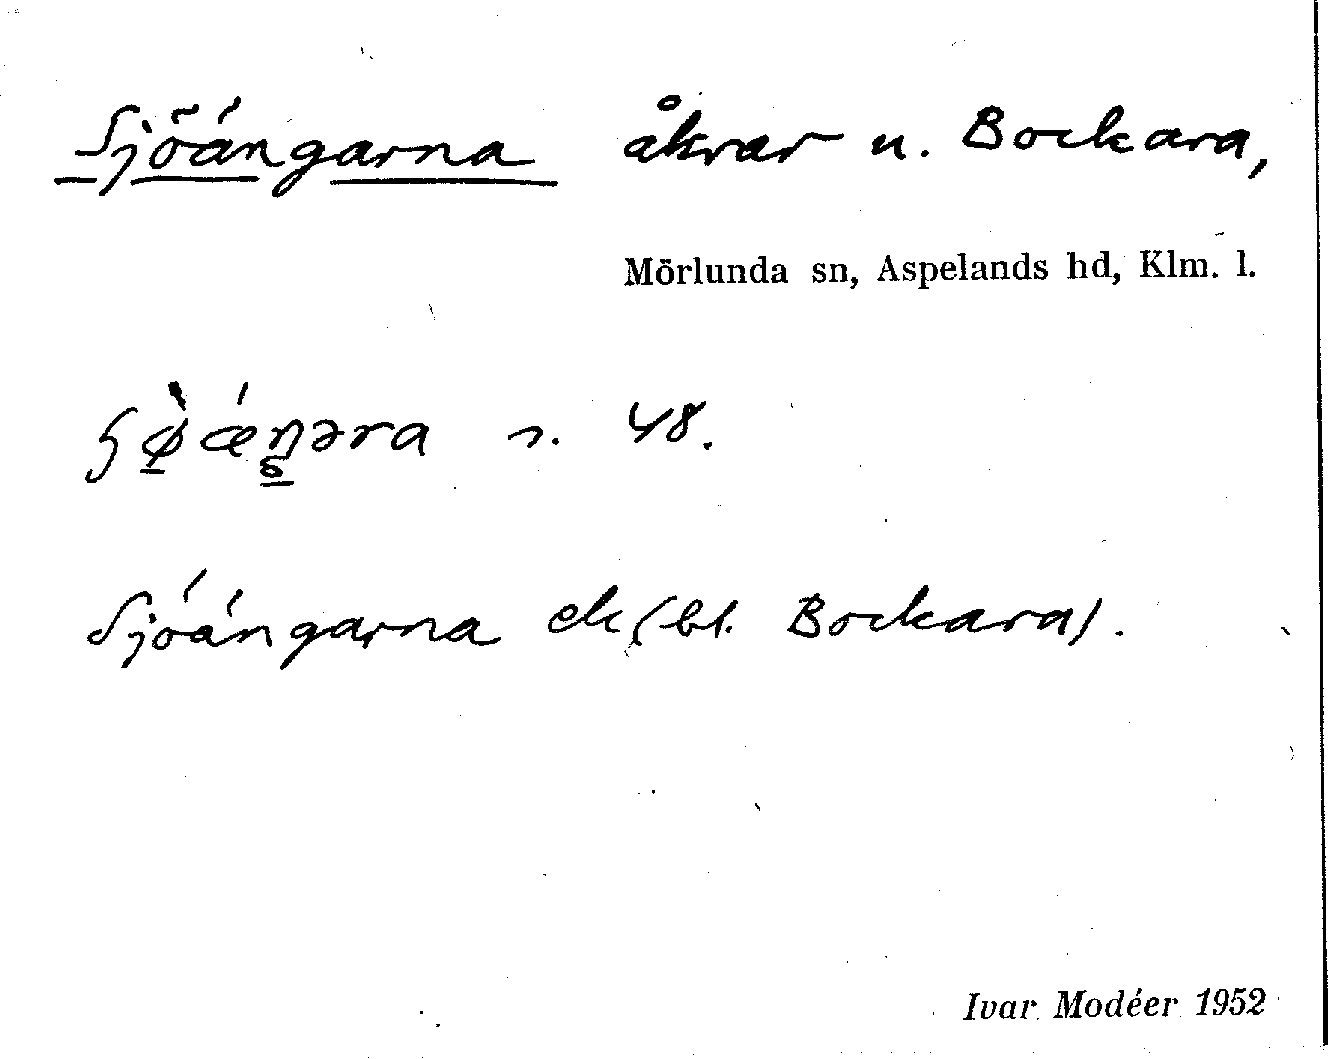 Sjöängarna åkrar u. Bockara,
Mörlunda sn, Aspelands hd, Klm. l.
48.
Sjöängarna ek (bl. Bockara).
Ivar Modéer 1952